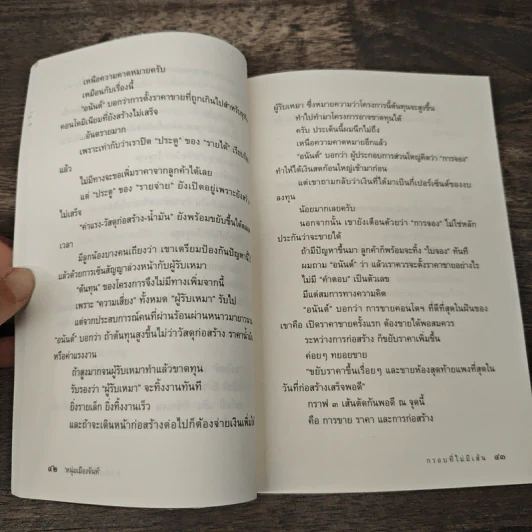 เหนือความคาดหมายครับ
เหมือนกับเรื่องนี้
"อนันต์" บอกว่าการตั้งราคาขายที่ถูกเกินไปสำหรับ
คอนโดมิเนียมที่ยังสร้างไม่เสร็จ
...อันตรายมาก
เพราะเท่ากับว่าเราปิด "ประตู" ของ "รายได้"
แล้ว
ไม่มีทางจะขอเพิ่มราคาจากลูกค้าได้เลย
แต่ "ประตู" ของ "รายจ่าย" ยังเปิดอยู่เพราะยัง
ไม่เสร็จ
"ค่าแรง-วัสดุก่อสร้าง-น้ำมัน" ยังพร้อมขยับขึ้นได้ตลอด
เวลา
มีลูกน้องบางคนเถียงว่า เขาเตรียมป้องกันปัญหานี้ไว้
แล้วด้วยการเซ็นสัญญาล่วงหน้ากับผู้รับเหมา
"ต้นทุน" ของโครงการจึงไม่มีทางเพิ่มจากนี้
เพราะ "ความเสี่ยง" ทั้งหมด "ผู้รับเหมา" รับไป
แต่จากประสบการณ์คนที่ผ่านร้อนผ่านหนาวมายาวนาน
"อนันต์" บอกว่า ถ้าต้นทุนสูงขึ้นไม่ว่าวัสดุก่อสร้าง ราคาน้ำมัน
หรือค่าแรงงาน
ถ้าสูงมากจนผู้รับเหมาทำแล้วขาดทุน
รับรองว่า "ผู้รับเหมา" จะทิ้งงานทันที
ยิ่งรายเล็ก ยิ่งทิ้งงานเร็ว
และถ้าจะเดินหน้าก่อสร้างต่อไปก็ต้องจ่ายเงินเพิ่มให้
๔๒ หนุ่มเมืองจันท์
ผู้รับเหมา ซึ่งหมายความว่าโครงการนี้ต้นทุนจะสูงขึ้น
ทำไปทำมาโครงการอาจขาดทุนได้
ครับ ประเด็นนี้ผมนึกไม่ถึง
เหนือความคาดหมายอีกแล้ว
"อนันต์" บอกว่า ผู้ประกอบการส่วนใหญ่คิดว่า "การจอง"
ทำให้ได้เงินสดก้อนใหญ่เข้ามาก่อน
แต่เขาถามกลับว่าเงินที่ได้มาเป็นกี่เปอร์เซ็นต์ของงบ
ลงทุน
น้อยมากเลยครับ
นอกจากนั้น เขายังเตือนด้วยว่า "การจอง" ไม่ใช่หลัก
ประกันว่าจะขายได้
ถ้ามีปัญหาขึ้นมา ลูกค้าก็พร้อมจะทิ้ง "ใบจอง" ทันที
ผมถาม "อนันต์" ว่า แล้วเราควรจะตั้งราคาขายอย่างไร
ไม่มี "คำตอบ" เป็นตัวเลข
มีแต่สมการทางความคิด
"อนันต์" บอกว่า การขายคอนโดฯ ที่ดีที่สุดในฝันของ
เขาคือ เปิดราคาขายครั้งแรก ต้องขายได้พอสมควร
ระหว่างการก่อสร้าง ก็ขยับราคาเพิ่มขึ้น
ค่อยๆ ทยอยขาย
"ขยับราคาขึ้นเรื่อยๆ และขายห้องสุดท้ายแพงที่สุดใน
วันที่ก่อสร้างเสร็จพอดี"
กราฟ ๓ เส้นตัดกันพอดี ณ จุดนี้
คือ การขาย ราคา และการก่อสร้าง
กรอบที่ไม่มีเส้น ๔๓